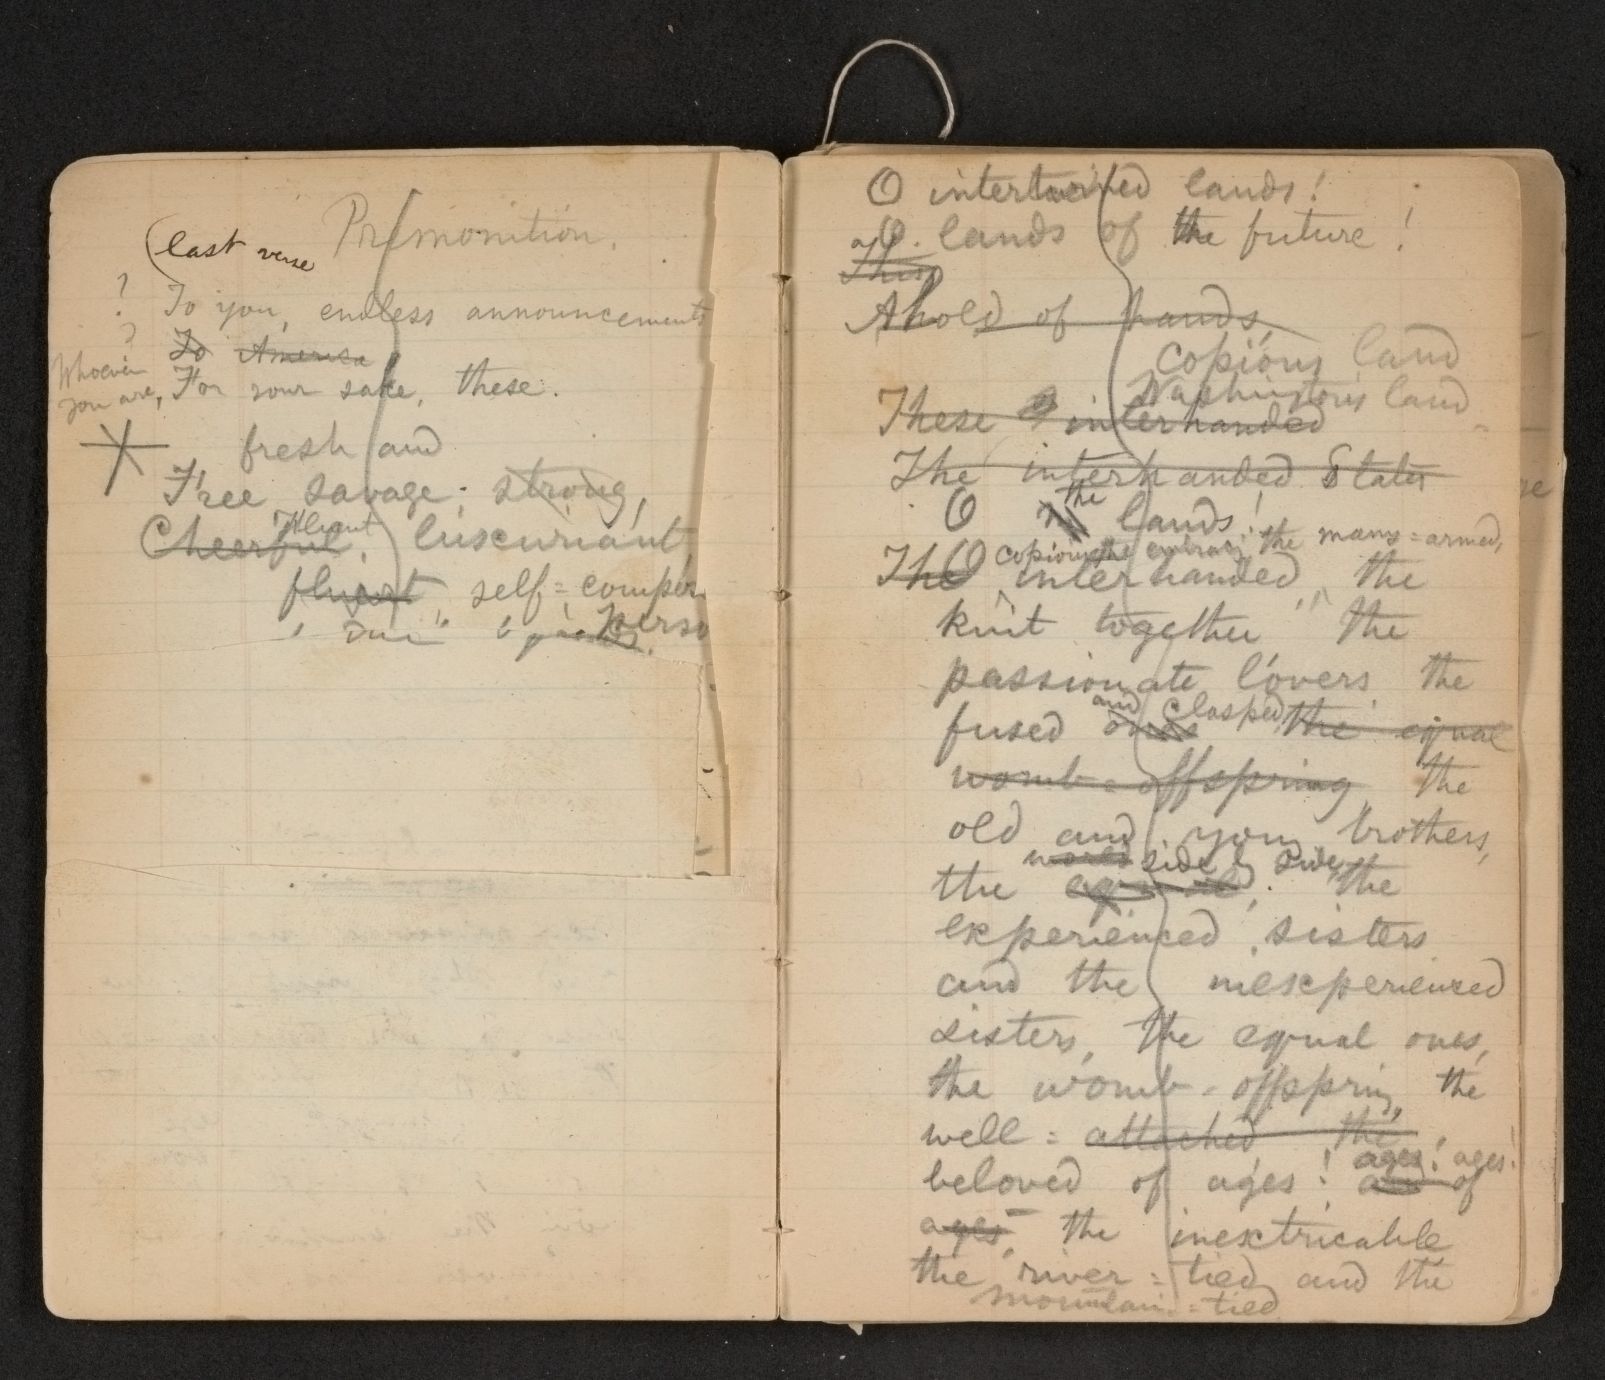 Premonition.
(last verse
? To you, endless announcements
? To America
Whoever
you are, For your sake, these.
fresh and
Free, savage, strong,
fluent
Cheerful, luxuriant,
fluent, self-
O intertwined lands!
O lands of the future!
This
A hold of hands,
copious land
Washington's land
These interhanded
The interhanded States
the
O lands!
copious the the many-armed,
The O interhanded, the
knit together the
passionate lovers the
and clasped
fused ones the equal
womb-offspring, the
old and young brothers,
side by side,
the the
experienced sisters
and the inexperienced
sisters, the equal ones,
the womb-offspring, the
well = attached the
ages! ages!
beloved of ages! and of
ages, the inextricable
the river=tied and the
mountain=tied